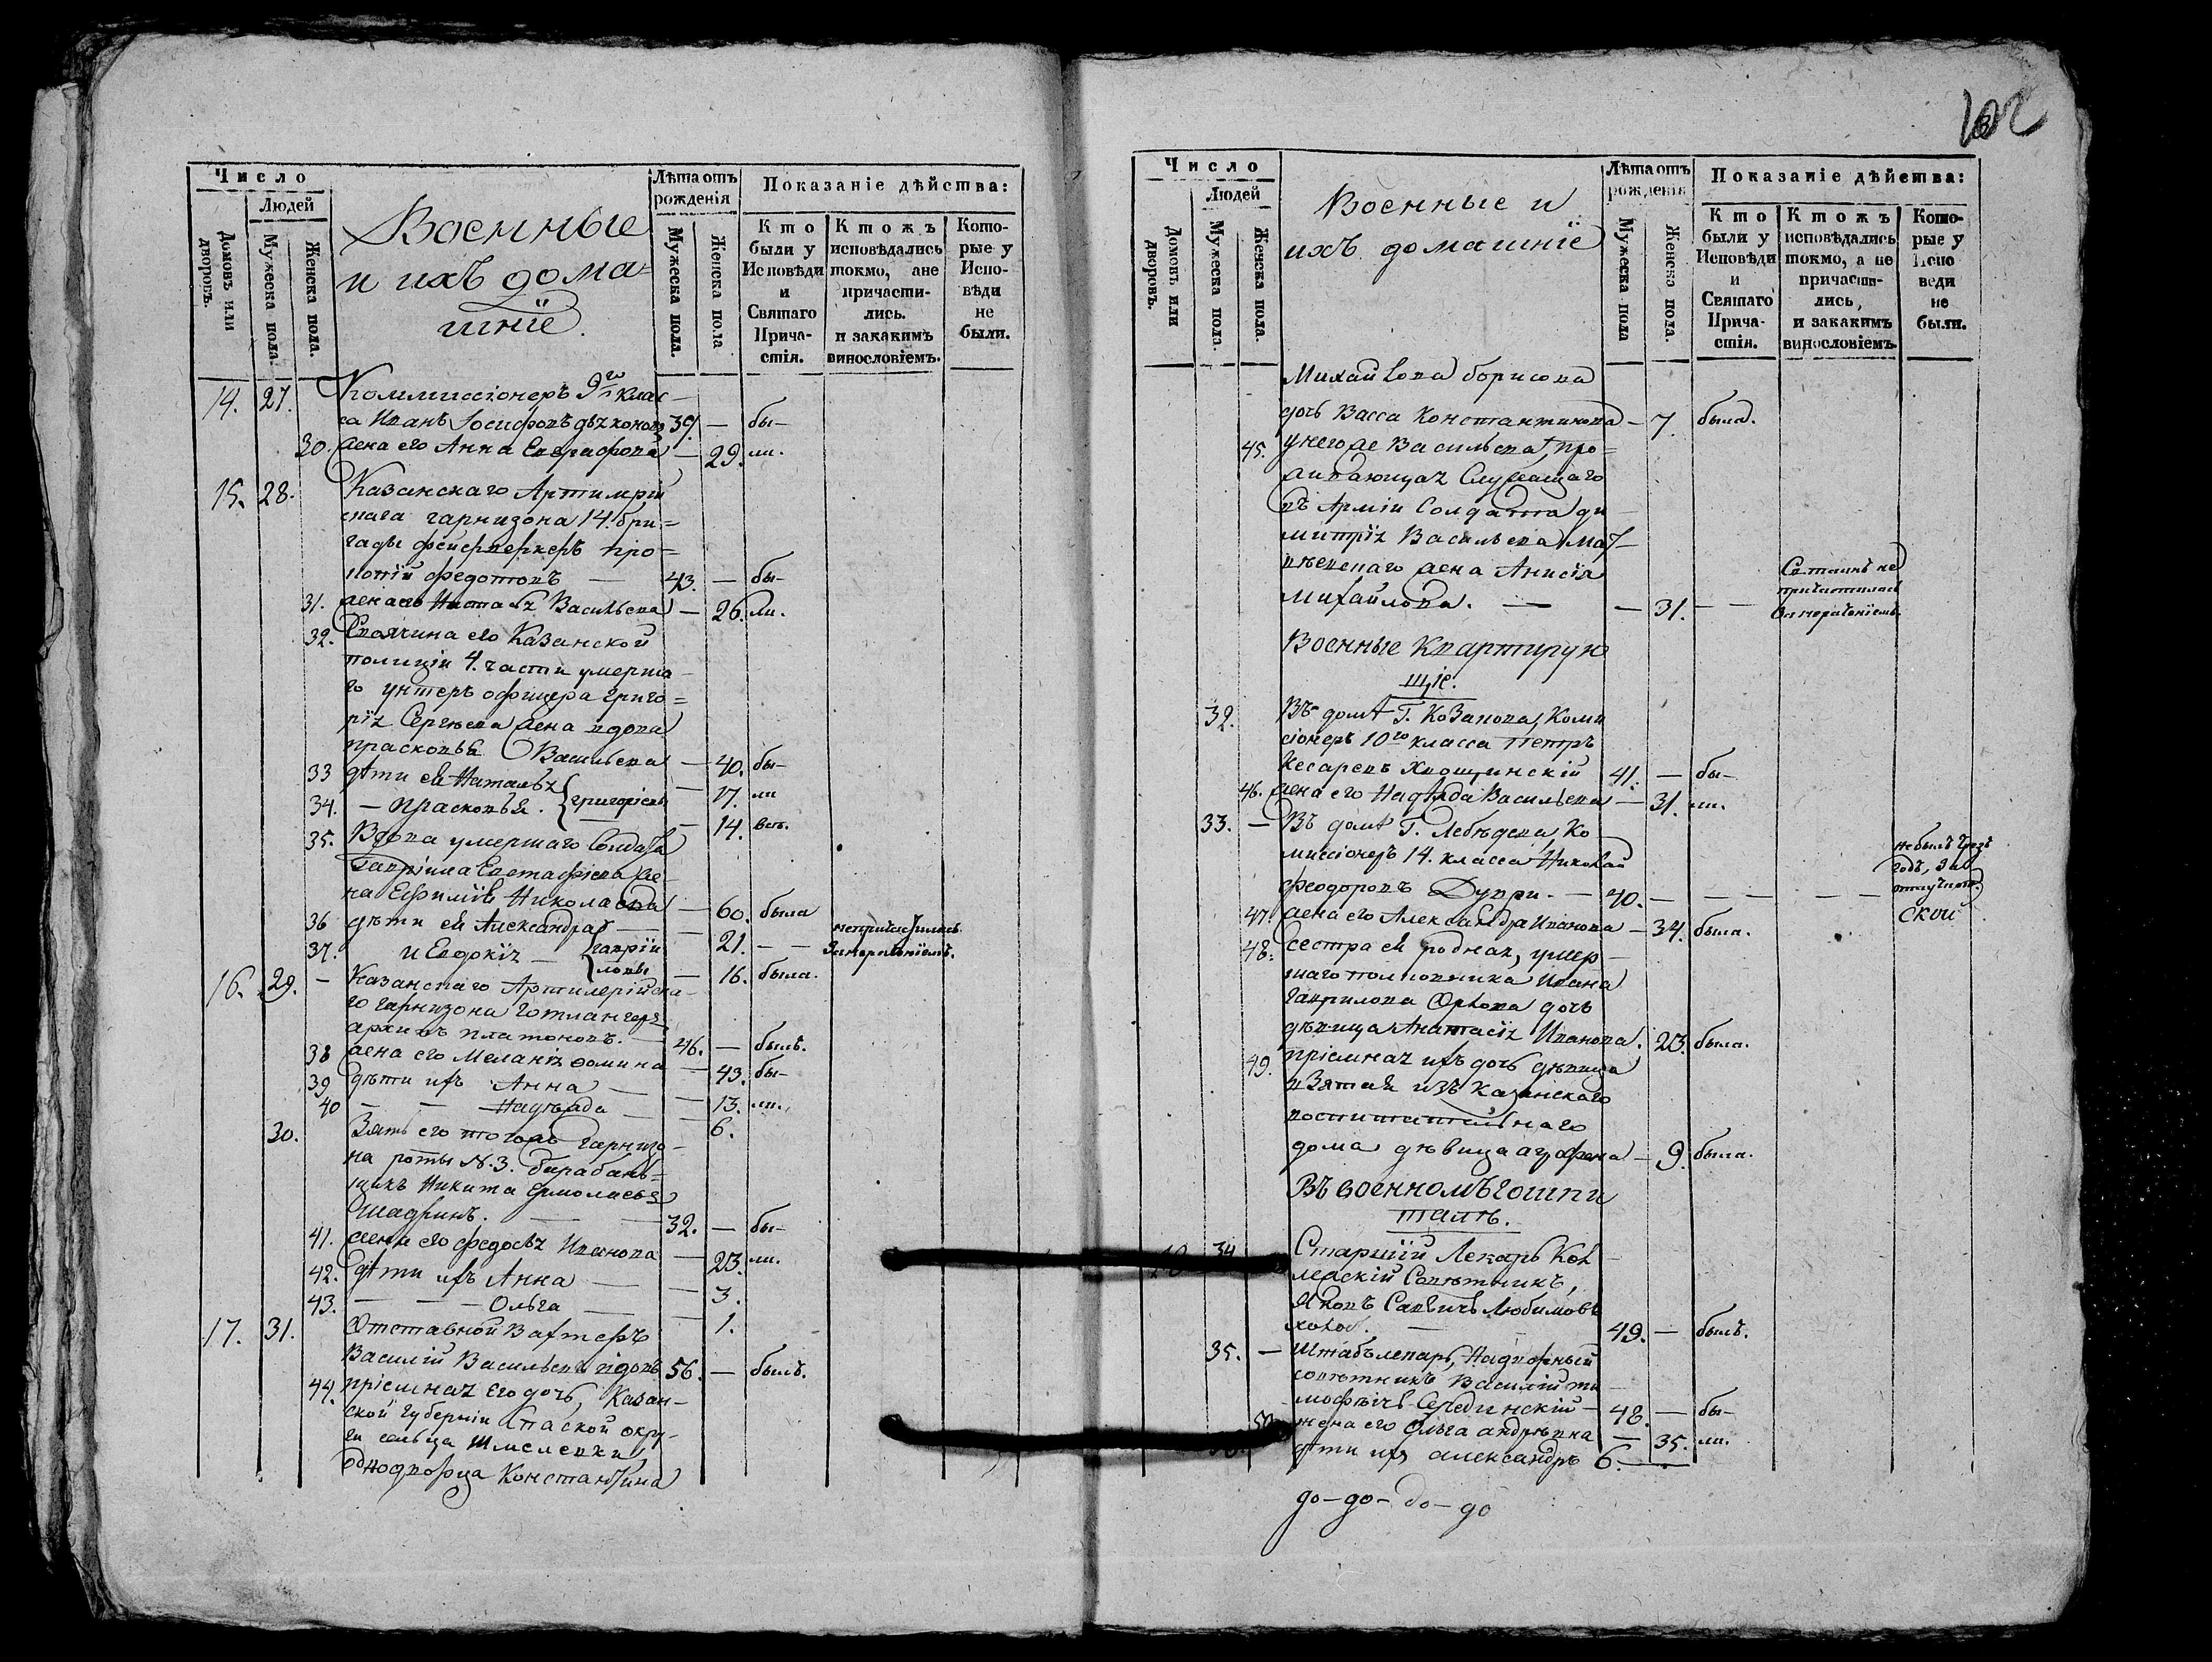 Число
Людей
Домовъ или дворовъ.
Мужеска пола.
Женска пола.
Военные
и ихъ дома=
шніе.
Лѣта отъ рожденія
Мужеска пола.
Женска пола
Показаніе дѣйства:
Кто были у Исповѣди и Святаго Прича-стія.
Ктожъ исповѣдались токмо, ане причасти-лись. и закакимъ винословіемъ.
Кото-рые у Испо-вѣди не были.
14. 27. Коммиссіонеръ 9го клас-
са Иванъ Іосифовъ 39. — бы-
30. жена его Анна Евграфова — 29. ли.
15. 28. Казанскаго Артилерій
скаго гарнизона 14. бри=
гады фейерверкеръ про=
копій Федотовъ — 43. — бы-
31. жена его Наталья Васильева — 26. ли.
32. Своячина его Казанской
полиціи 4. части умерша
го унтеръ офицера Григо=
рія Сергѣева жена вдова
прасковья Васильева — 40. бы-
33 дѣти ея Наталья Григорьевы — 17. ли
34. — прасковья. — 14. всѣ.
35. Вдова умершаго Солдата
Гавріила Евстафіева же-
на Ефимія Николаева — 60. была
36 дѣти ея Александра — 21. — — непричастилась
37. и Евдокія — гаврій
ловы — 16. была.
16. 29. — Казанскаго Артилерійска-
го гарнизона Готлангеръ
архипъ платоновъ. — 46. — былъ.
38 жена его Меланія Фомина — 43. бы-
39 дѣти ихъ Анна — 13. ли.
40 — — Надѣжда — 6.
30. Зять его тогожъ гарнизо-
на роты N. 3. барабань=
щикъ Никита Ермолаевъ
Шадринъ. — 32. — бы-
41. жена его Федосья Иванова — 23. ли.
42. дѣти ихъ Анна — 3.
43. — — Ольга — 1.
17. 31. Отставной Вахтеръ
Василій Васильевъ вдовъ 56. — былъ.
44. пріемная его дочь, Казан-
ской губерніи Спаской окру-
ги сельца
однодворца Константина
102
Число
Людей
Домовъ или дворовъ.
Мужеска пола.
Женска пола.
Военные и
ихъ домашніе
Лѣта отъ рожденія
Мужеска пола
Женска пола.
Показаніе дѣйства:
Кто были у Исповѣди и Святаго Прича-стія.
Ктожъ исповѣдались токмо, а не причасти-лись, и закакимъ винословіемъ.
Кото-рые у Испо веди не были.
Михайлова борисова
дочь Васса Константинова — 7. была.
45. у него же Васильева, про=
живающая Служащаго
въ Арміи Солдата ди
митрія Васильева Мат-
вѣевскаго жена Анисія
Михайлова. — — 31. — — причастилась
Военные Квартирую
щіе.
32. Въ домѣ Г. Козанова, Коми
сіонеръ 10го класса Петръ
Кесаревъ Хвощинскій 41. — бы-
46. жена его Надѣжда Васильева — 31. ли.
33. — Въ домѣ Г. Лебѣдева, Ко
миссіонеръ 14. класса Николай
Феодоровъ Дупри. — 40. — — — — небылъ чрезъ
годъ, за
отлучкой
47. жена его Александра Иванова — 34. была.
48. сестра ея родная, умер-
шаго полковника Ивана
Гаврилова Орлова дочь
дѣвица Анастасія Иванова. 23. была.
49. пріемная ихъ дочь дѣвица
взятая изъ Казанскаго
воспитательнаго
дома дѣвица агрофена — 9. была.
Въ военномъ гошпи
талѣ.
34 Старшій Лекарь Кол-
лежскій Совѣтникъ,
Яковъ Савичъ Любимовъ
49. — былъ.
35. — Штабълекарь, Надворный
совѣтникъ Василій ти
мофѣичъ Серединскій — 48. — бы-
50. жена его Ольга андрѣвна — 35. ли.
дѣти ихъ александръ 6. —
до-до-до-до